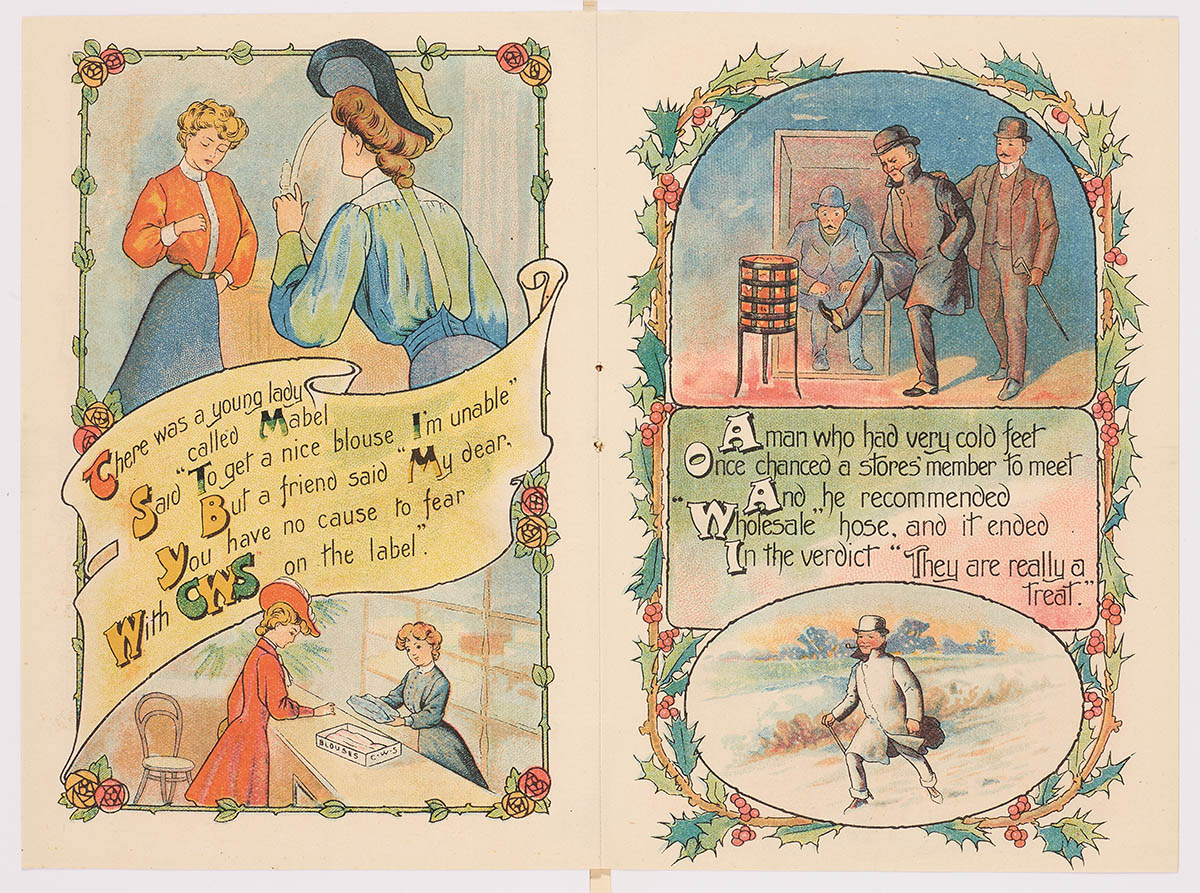 There was a young lady
called Mabel
Said "To get a nice blouse I'm unable"
But a friend said "My dear,
You have no cause to fear
With CWS on the label."
BLOUSES C·W·S
A man who had very cold feet
Once chanced a stores' member to meet
And he recommended
"Wholesale" hose, and it ended
In the verdict "They are really a
treat."